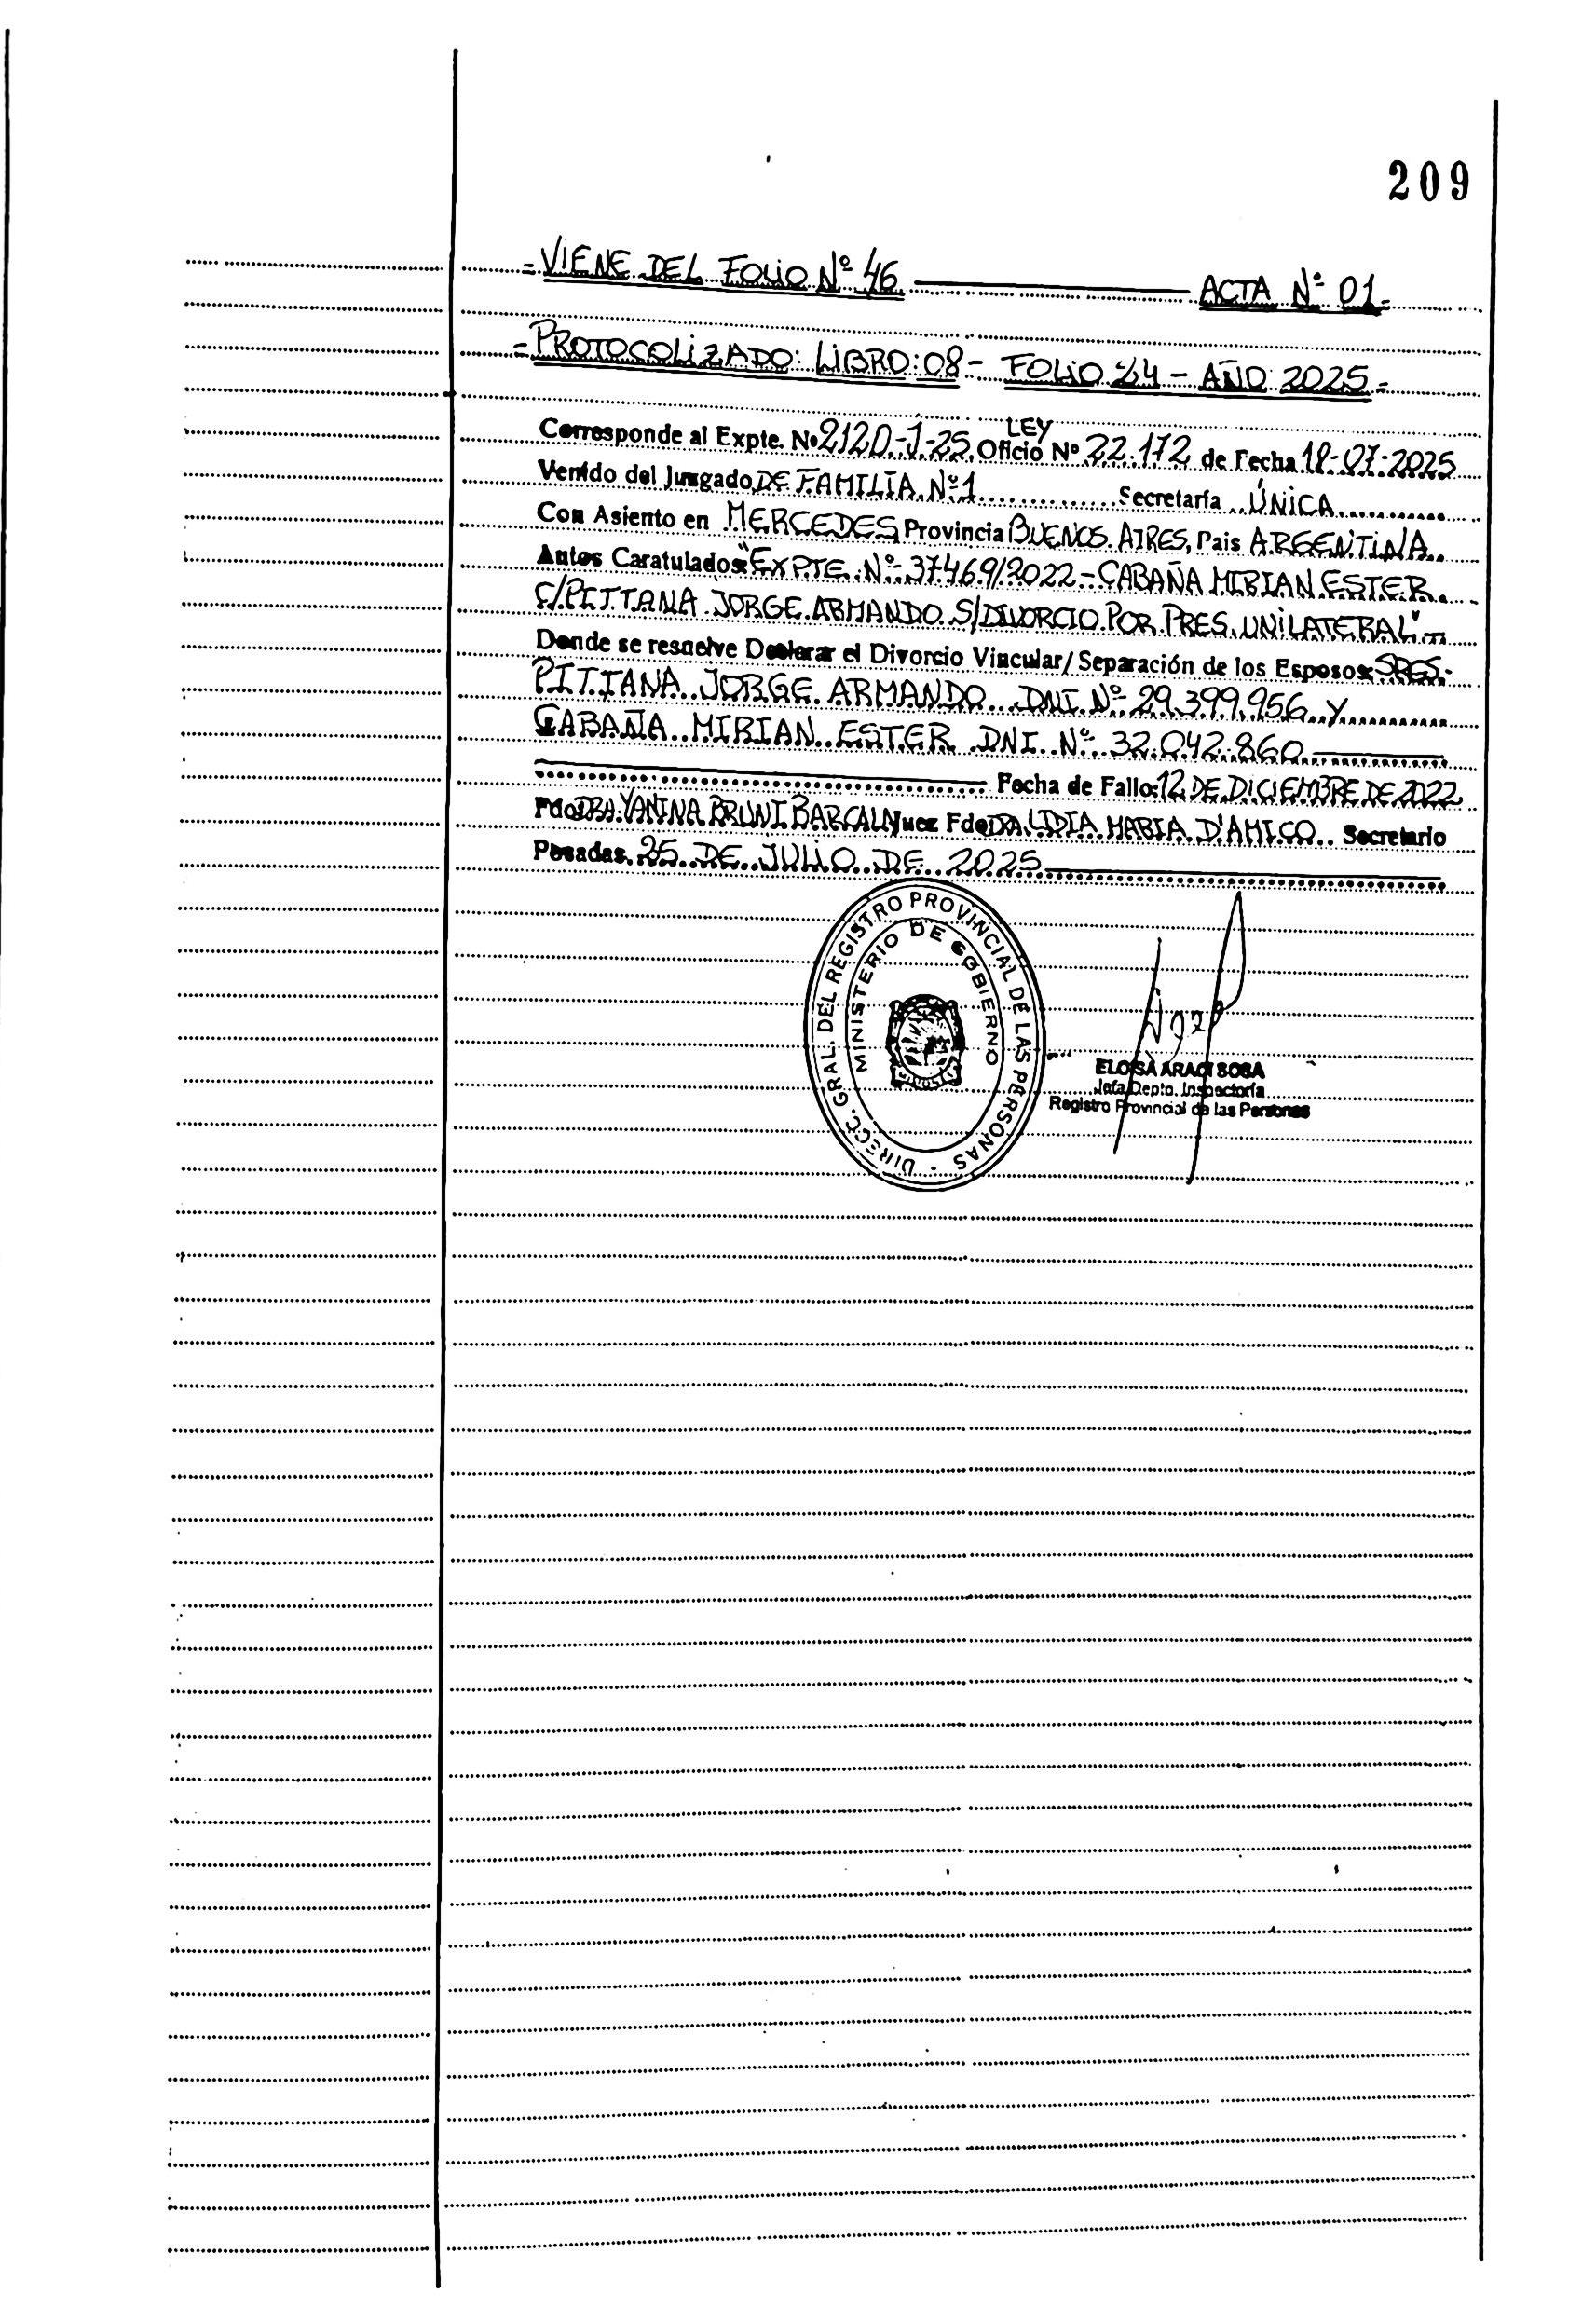 209
= VIENE DEL FOLIO Nº 46. ACTA Nº 01-
= PROTOCOLIZADO: LIBRO: 08 - FOLIO - AÑO 2025=
LEY
Corresponde al Expte. Nº 2120-J-25, Oficio Nº 22.172 de Fecha 18-07-2025
Venido del Juzgado DE FAMILIA Nº 1 Secretaría ÚNICA
Con Asiento en MERCEDES Provincia BUENOS AIRES, Pais ARGENTINA.
Autos Caratulados: "EXPTE. Nº 37469/2022 - CABAÑA MIRIAN ESTER
C/PITTANA JORGE ARMANDO S/DIVORCIO POR PRES. UNILATERAL"
Donde se resuelve Declarar el Divorcio Vincular/Separación de los Esposos: SRES.
PITTANA JORGE ARMANDO DNI Nº 29.399.956 Y
CABAÑA MIRIAN ESTER DNI Nº 32.042.860
Fecha de Fallo: 12 DE DICIEMBRE DE 2022
Fdo DRA. YANINA BRUNI BARCALA Juez Fdo DRA. LIDIA MARIA D'AMICO Secretario
Posadas, 25 DE JULIO DE 2025
DIRECC. GRAL. DEL REGISTRO PROVINCIAL DE LAS PERSONAS -
MINISTERIO DE GOBIERNO
ELOISA ARACI SOSA
Jefa Depto. Inspectoría
Registro Provincial de las Personas